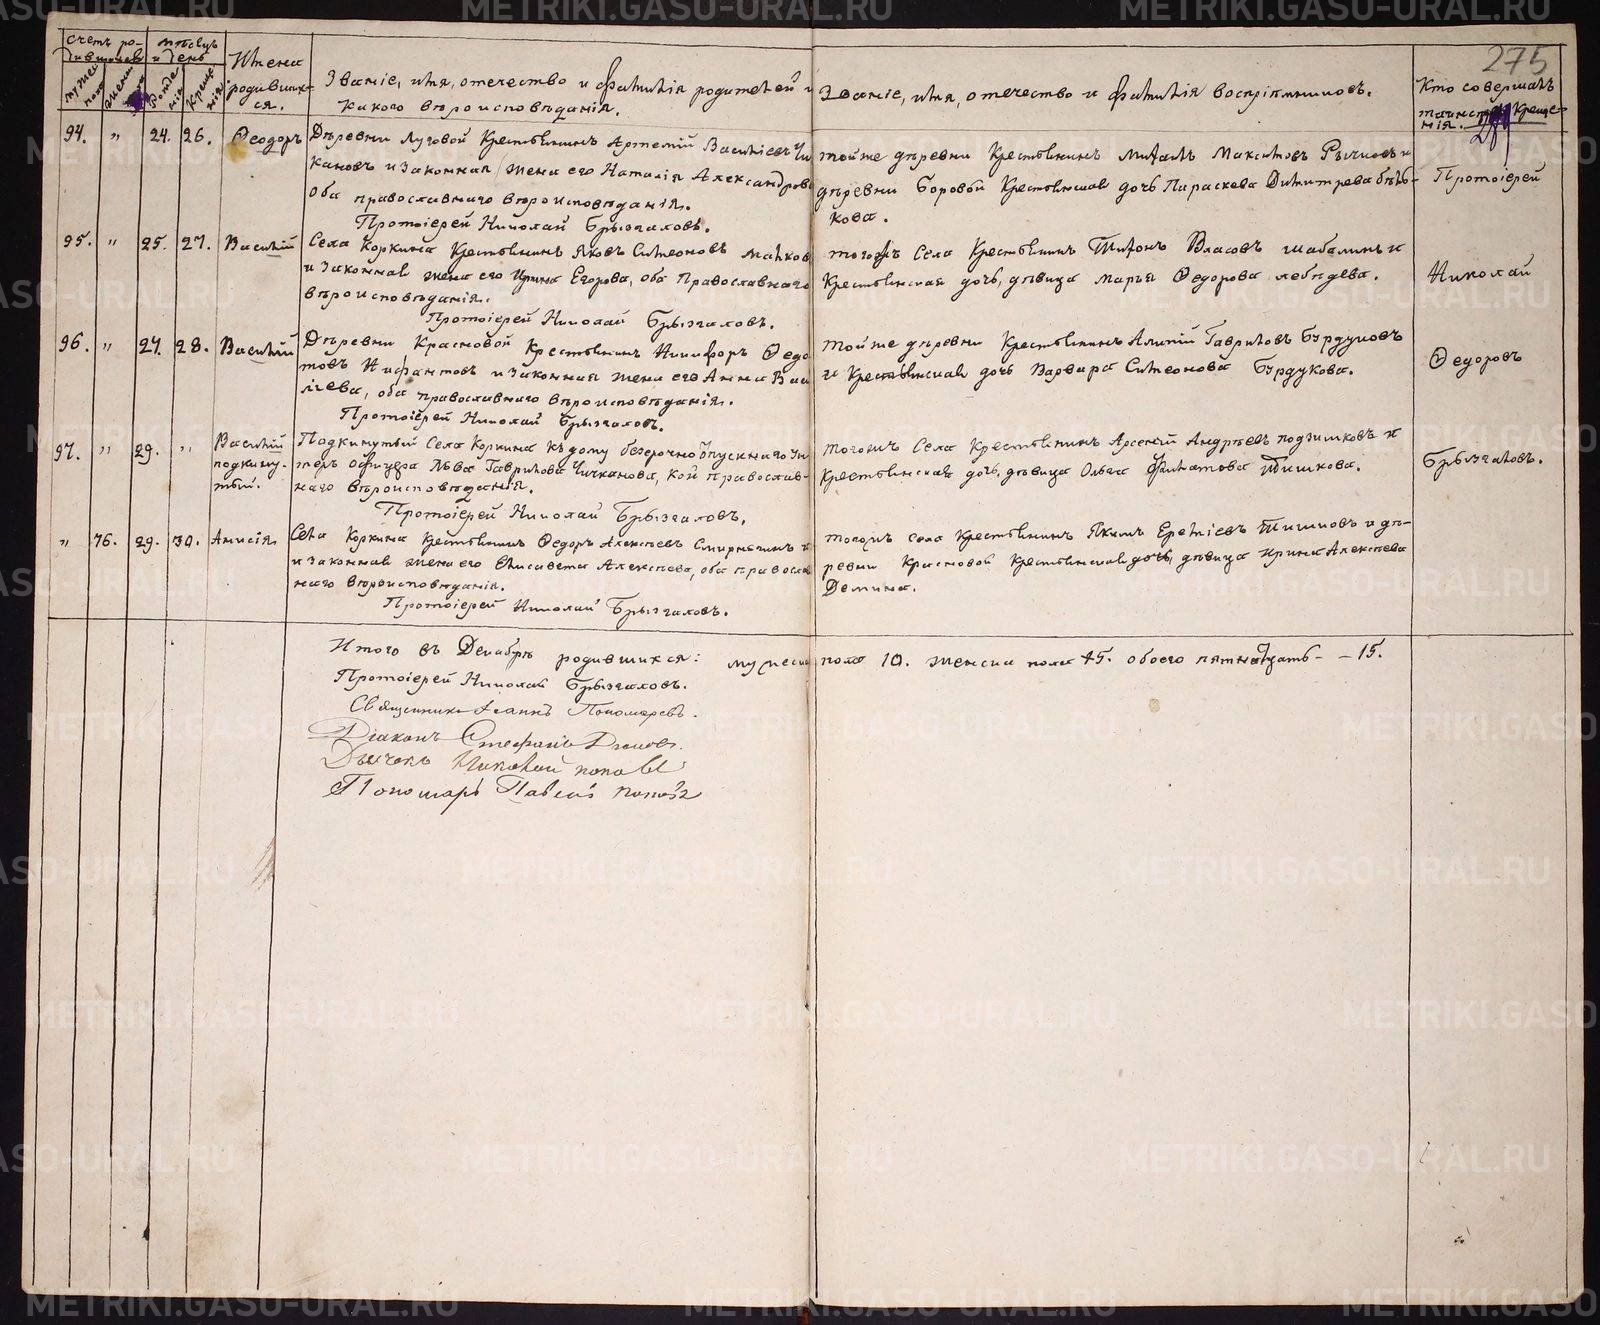 275
счетъ ро-
дившихся
мѣсяцъ
и день
мужес.
пола
женск.
Рожде
нія
Креще
нія
Имена
родивших-
ся.
Званіе, имя, отечество и фамилія родителей и
какого вѣроисповѣданія.
Званіе, имя, отечество и фамилія воспріемниковъ.
Кто совершалъ
таинство Креще-
нія.
94. " 24. 26. Ѳеодоръ
Деревни Луговой Крестьянинъ Артемій Василіевъ Чи
кановъ и законная жена его Наталія Александрова
оба православнаго вѣроисповѣданія.
Протоіерей Николай Брызгаловъ.
тойже деревни Крестьянинъ Михаилъ Максимовъ Рычковъ и
деревни Боровой Крестьянская дочь Параскева Димитрева
кова.
Протоіерей
95. " 25. 27. Василій
Села Коркина Крестьянинъ Яковъ Симеоновъ
и законная жена его Ирина Егорова, оба Православнаго
вѣроисповѣданія.
Протоіерей Николай Брызгаловъ.
тогожъ Села Крестьянинъ Тихонъ Власовъ Шабалинъ и
Крестьянская дочь, дѣвица Марья Ѳедорова Лебедева.
Николай
96. " 27. 28. Василій
Деревни Красновой Крестьянинъ Никифоръ Ѳедо
товъ Нифантовъ и законная жена его Анна Васи
ліева, оба православнаго вѣроисповѣданія.
Протоіерей Николай Брызгаловъ.
тойже деревни Крестьянинъ Алипій Гавриловъ Бурдуковъ
и Крестьянская дочь Варвара Симеонова Бурдукова.
Ѳедоровъ
97. " 29. " Василій
подкину-
тый.
Подкинутый Села Коркина къ дому безсрочноотпускнаго Ун
теръ офицера Льва Гаврилова Чичканова, кой православ-
наго вѣроисповѣданія.
Протоіерей Николай Брызгаловъ.
тогожъ Села Крестьянинъ Арсеній Андреевъ и
Крестьянская дочь, дѣвица Ольга Филатова Тишкова.
Брызгаловъ.
" 76. 29. 30. Анисія
Села Коркина Крестьянинъ Ѳедоръ Алексѣевъ Смирнягинъ
и законная жена его Елисавета Алексѣева, оба правосла
наго вѣроисповѣданія.
Протоіерей Николай Брызгаловъ.
тогожъ села Крестьянинъ Якимъ Еремѣевъ Тишковъ и де-
ревни Красновой Крестьянская дочь, дѣвица Ирина Алексѣева
Демина.
Итого въ Декабрѣ родившихся: мужеска пола 10. женска пола 5. обоего пятнадцать - - 15.
Протоіерей Николай Брызгаловъ.
Священникъ Іоаннъ Пономаревъ.
Діаконъ Стефанъ
Дьячекъ Николай Поповъ
Пономарь Павелъ Поповъ
METRIKI.GASO-URAL.RU